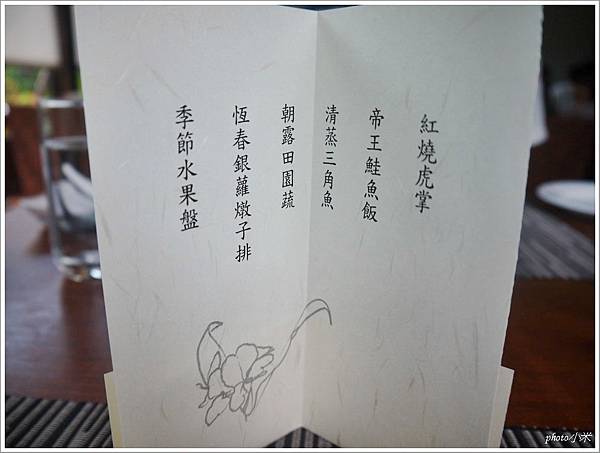 紅燒虎掌
帝王鮭魚飯
清蒸三角魚
朝露田園蔬
恆春銀蘿燉子排
季節水果盤
photo小米